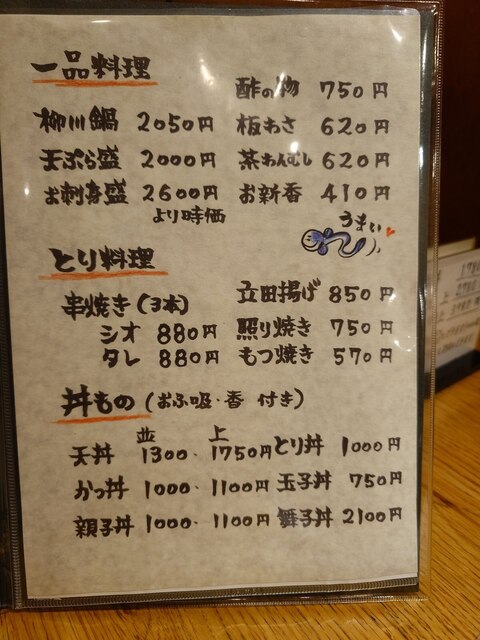 一品料理
酢の物 750円
柳川鍋 2050円
板わさ 620円
天ぷら盛 2000円
茶わんむし 620円
お刺身盛 2600円
より時価
お新香 410円
うまい
とり料理
串焼き(3本)
シオ 880円
タレ 880円
立田揚げ 850円
照り焼き 750円
もつ焼き 570円
丼もの(おふ吸・香 付き)
並 上
天丼 1300・1750円
とり丼 1000円
かつ丼 1000・1100円
玉子丼 750円
親子丼 1000・1100円
舞子丼 2100円